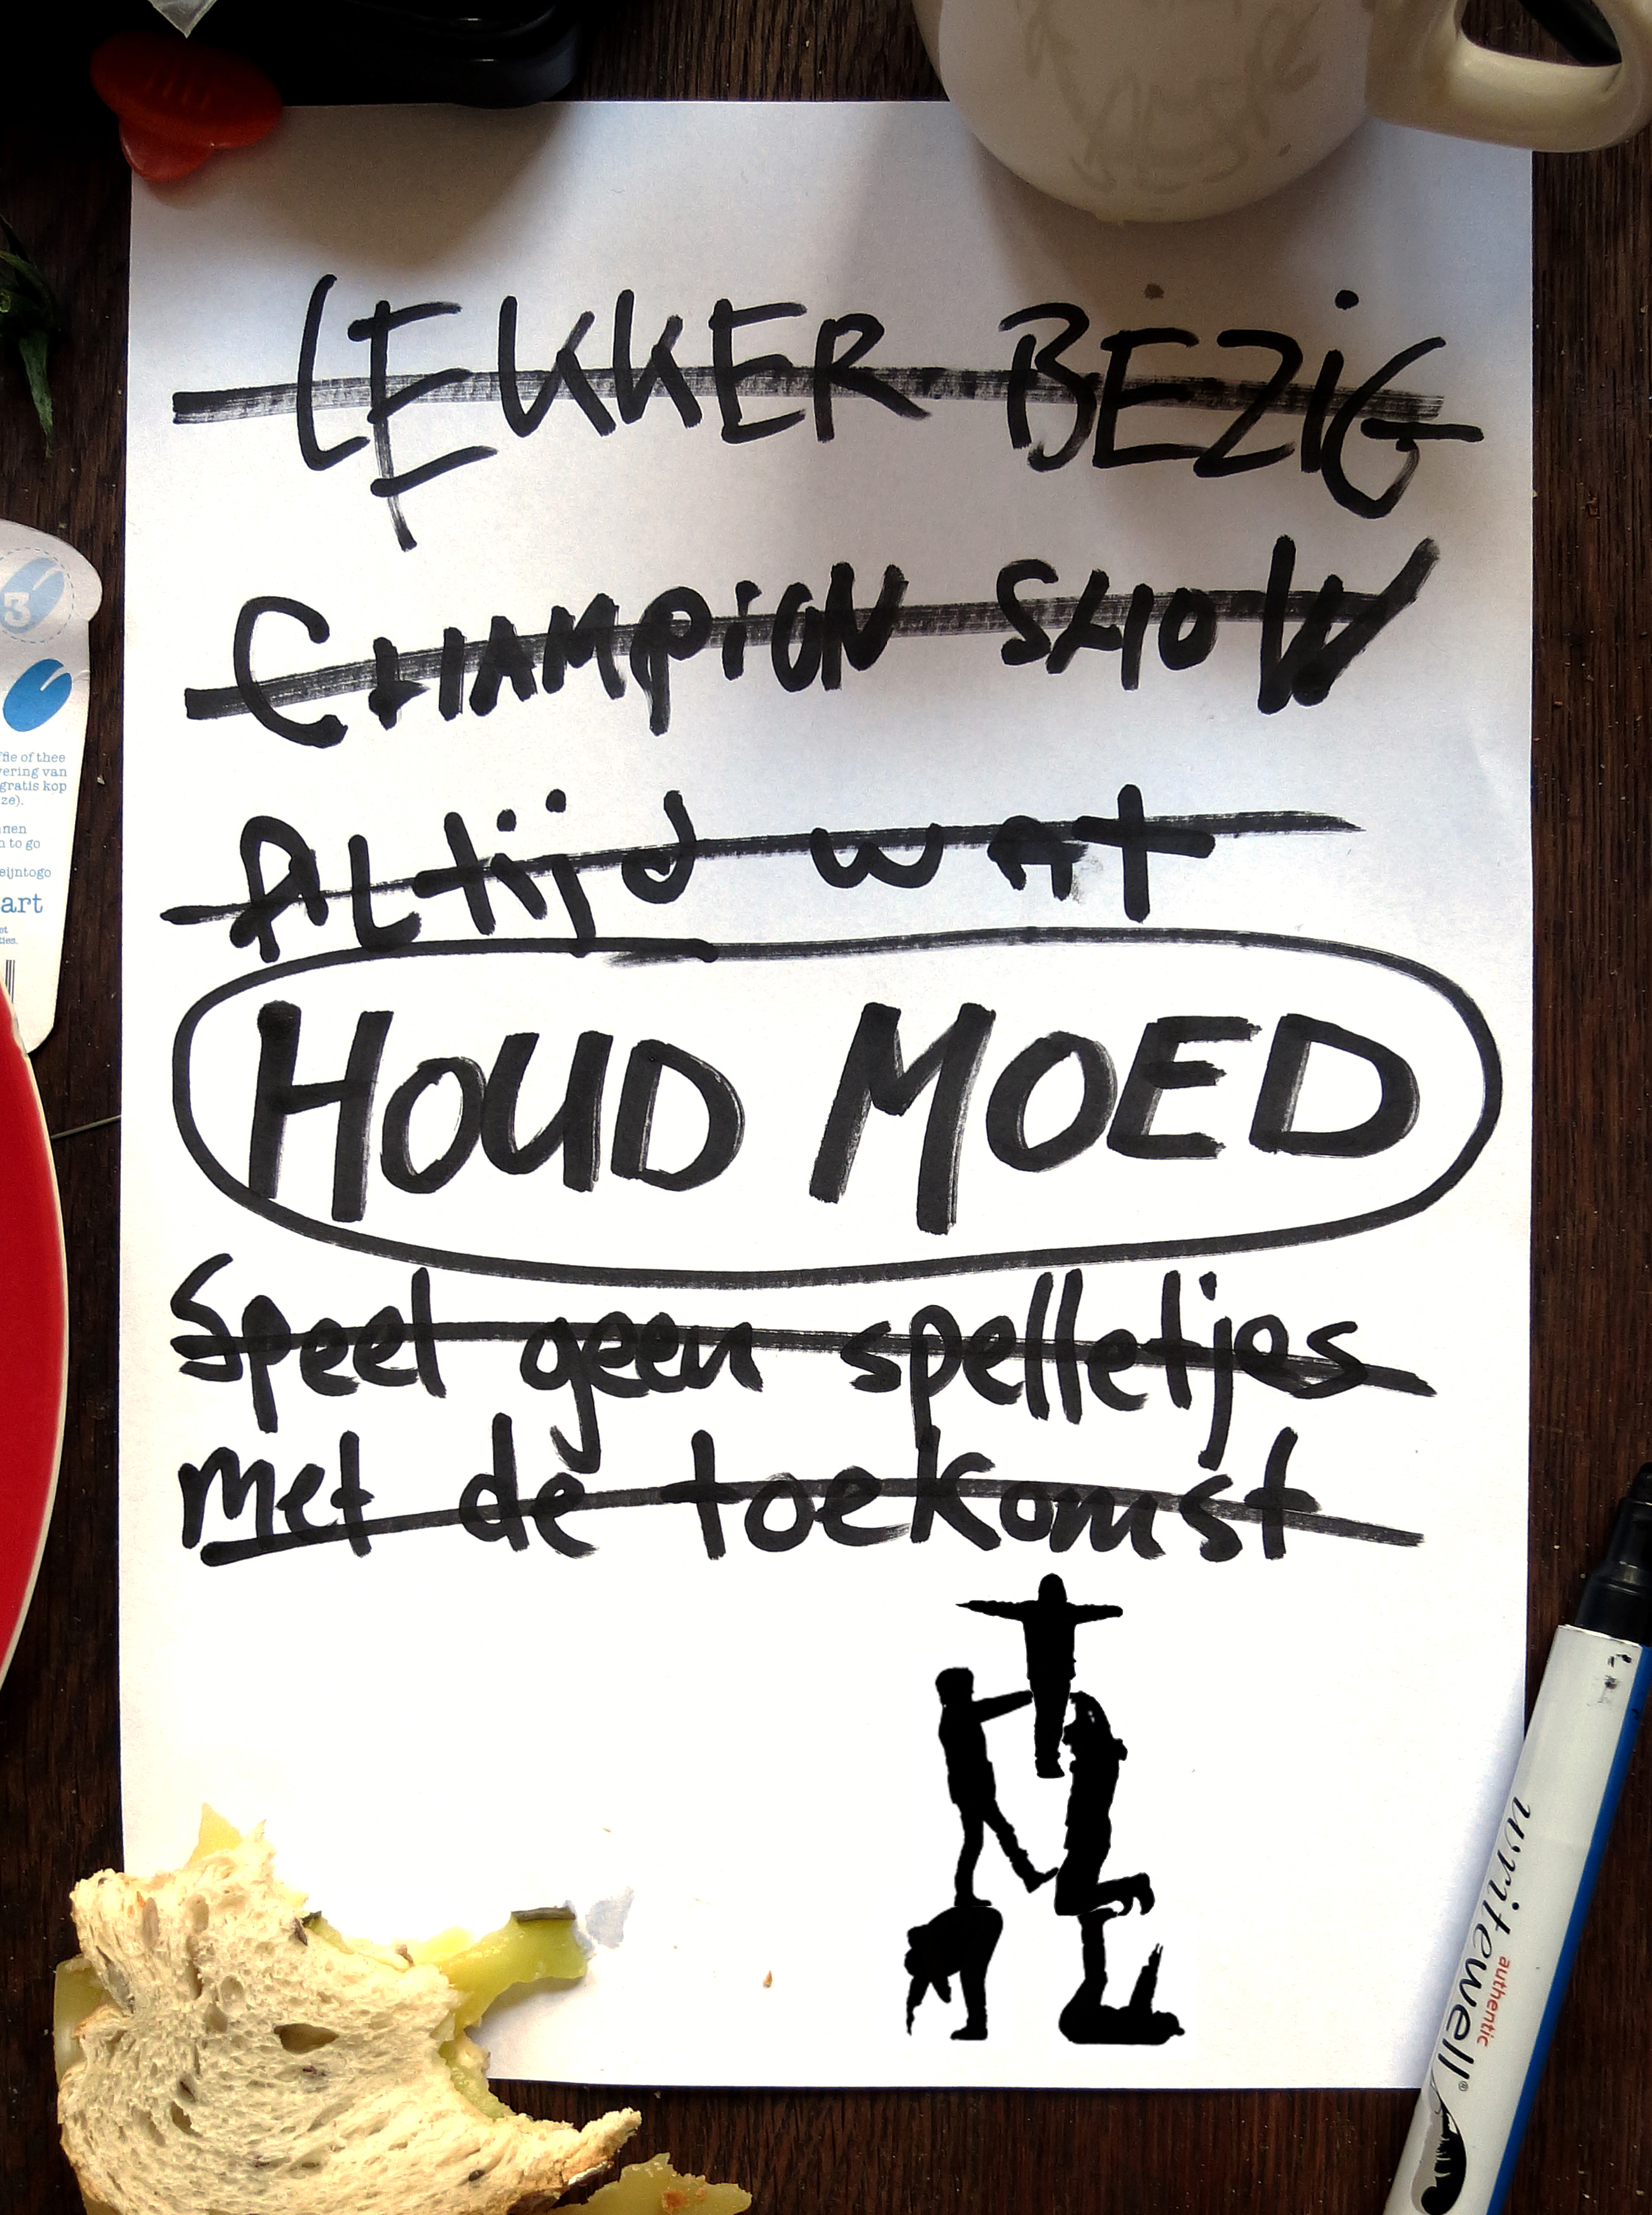 LEKKER BEZiG
CHAMPiON SHOW
ALtijd wAt
HOUD MOED
Speel geen spelletjes
met de toekomst
3
ffie of thee
ering van
gratis kop
ze).
nen
n to go
eijntogo
art
authentic
writewell®